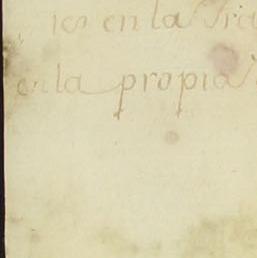 en la
en la propia